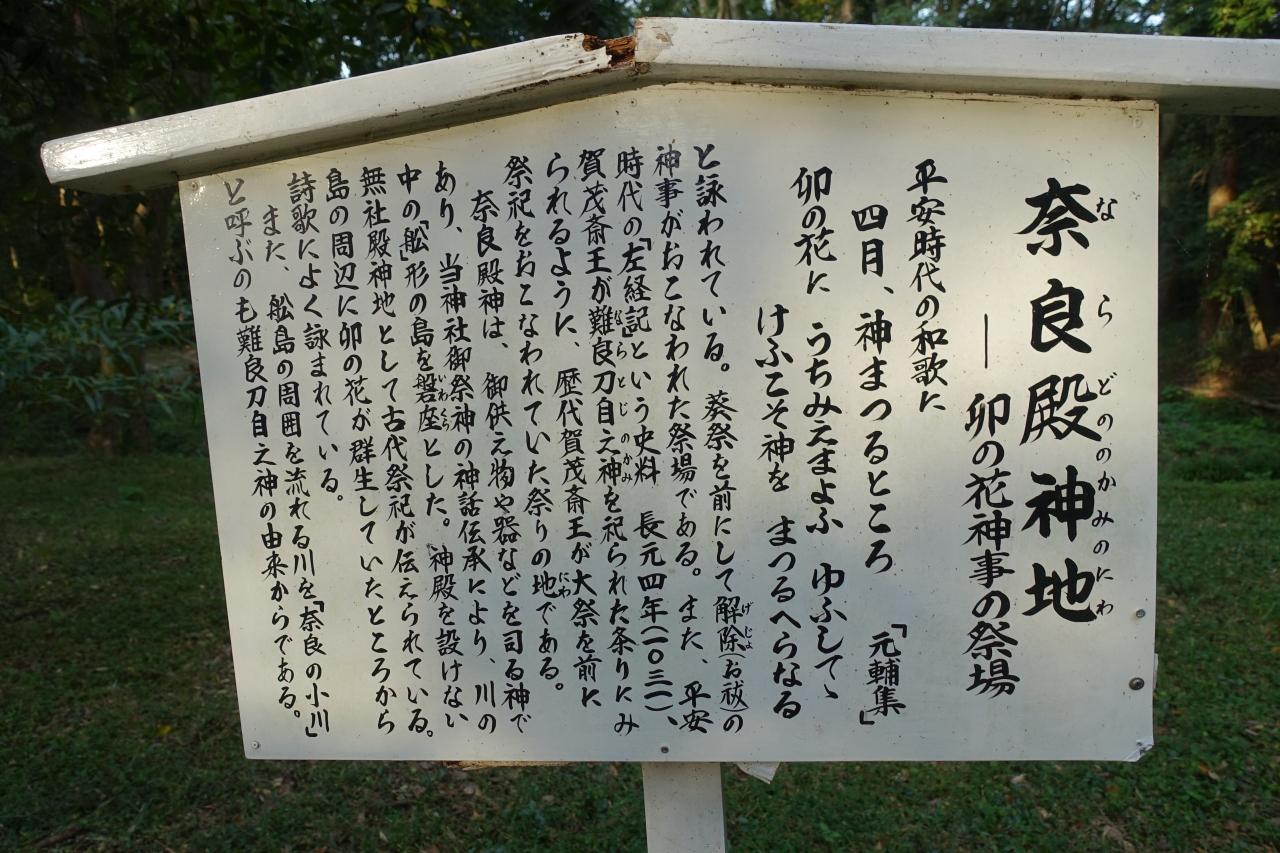 奈良殿神地
ならどののかみのにわ
―卯の花神事の祭場
平安時代の和歌に
四月、神まつるところ 「元輔集」
卯の花に うちみえまよふ ゆふしてゝ
けふこそ神を まつるへらなる
と詠われている。葵祭を前にして解除(お祓)の
げじょ
神事がおこなわれた祭場である。また、平安
時代の「左経記」という史料 長元四年(一〇三一)、
賀茂斎王が難良刀自之神を祀られた条りにみ
ならとじのかみ
られるように、歴代賀茂斎王が大祭を前に
祭祀をおこなわれていた祭りの地である。
にわ
奈良殿神は、御供え物や器などを司る神で
あり、当神社御祭神の神話伝承により、川の
中の「舩」形の島を磐座とした。神殿を設けない
いわくら
無社殿神地として古代祭祀が伝えられている。
島の周辺に卯の花が群生していたところから
詩歌によく詠まれている。
また、舩島の周囲を流れる川を「奈良の小川」
と呼ぶのも難良刀自之神の由来からである。